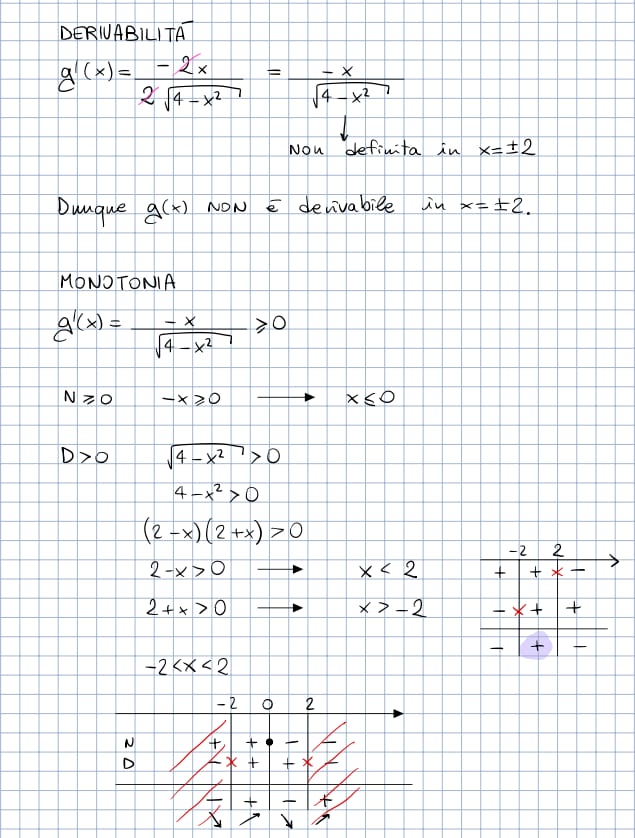 DERIVABILITÀ
g'(x) = -2x / 2√(4-x²) = -x / √(4-x²)
↓
Non definita in x=±2
Dunque g(x) NON è derivabile in x=±2.
MONOTONIA
g'(x) = -x / √(4-x²) ⩾ 0
N ⩾ 0 -x ⩾ 0 → x ⩽ 0
D > 0 √(4-x²) > 0
4-x² > 0
(2-x)(2+x) > 0
2-x > 0 → x < 2
2+x > 0 → x > -2
-2 2
+ + × -
- × + +
- + -
-2 < x < 2
-2 0 2
N + + • - -
D - × + + × -
- + - +
↘ ↗ ↘ ↗